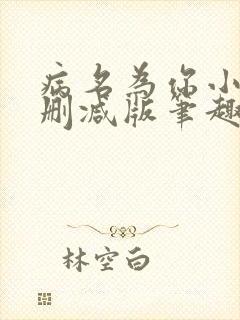 病名为你小
删减版笔趣
林空白